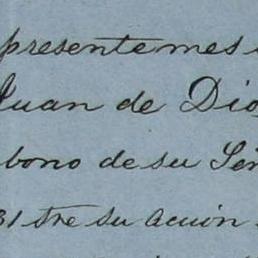 presente mes
Juan de Dios
bono de su Señ
31 tre su acción